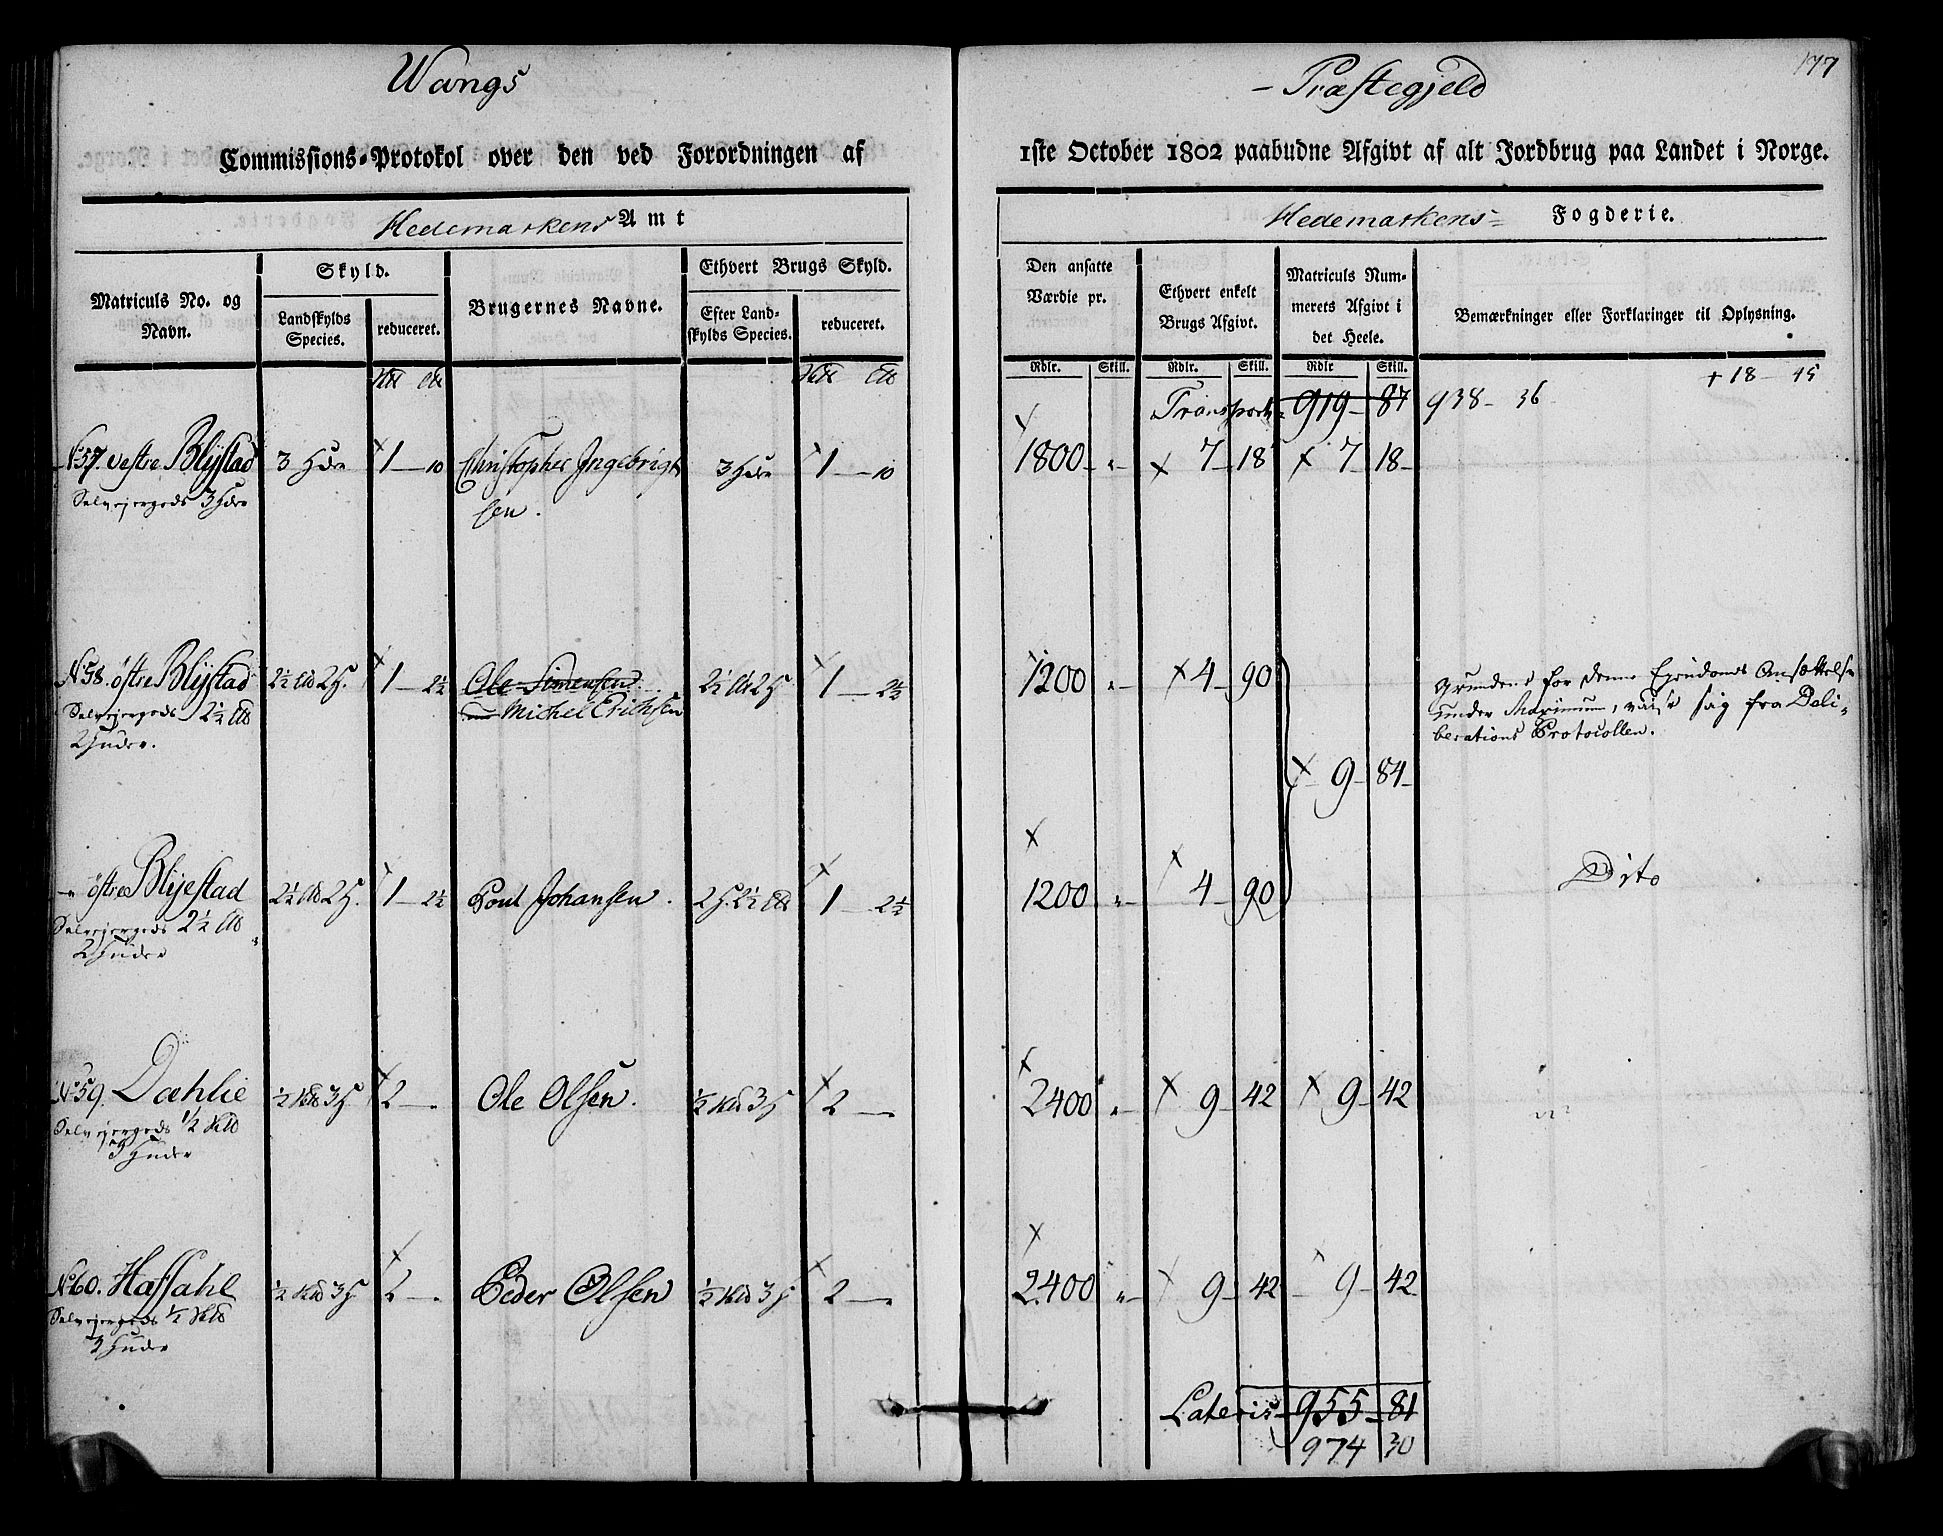 Wangs
Commissions-Protokol over den ved Forordningen af
Hedemarkens Amt
Matriculs No. og Navn.
Skyld.
Landskylds Species.
reduceret.
Brugernes Navne.
Ethvert Brugs Skyld.
Efter Landskylds Species.
reduceret.
No 57. vestre Blystad 3 Hder 1 — 10 Christopher Ingebrigt 3 Hder 1 — 10
Selvejergods 3 Hder sen.
No 58. østre Blystad 2½ 2 H. 1 — 2½ Ole Simensen 2½ 2 H 1 — 2½
Selvejergods 2½ Michel Erichsen
2 Huder.
— østre Blyestad 2½ 2 H. 1 — 2½ Poul Johansen. 2 H. 2½ 1 — 2½
Selvejergods 2½
2 Huder
No 59. Dæhlie ½ 3 H 2 — Ole Olsen. ½ 3 H 2 —
Selvejergods ½
3 Huder
No 60. Haffahl ½ 3 H 2 — Peder Olsen ½ 3 H 2 —
Selvejergods ½
3 Huder
177
- Præstegjeld
1ste October 1802 paabudne Afgivt af alt Jordbrug paa Landet i Norge.
Hedemarkens- Fogderie.
Den ansatte Værdie pr.
Ethvert enkelt Brugs Afgivt.
Matriculs Nummerets Afgivt i det Heele.
Bemærkninger eller Forklaringer til Oplysning.
Rdlr. Skill. Rdlr. Skill. Rdlr Skill.
+ 18 — 45
Transport 919 - 87 938 - 36
1800 - 7 - 18 7 18 -
1200 4 - 90 Grundene for denne Ejendoms Ansættelse
under Maximum, viise sig fra Deli-
berations Protocollen.
9 - 84 -
1200 4 - 90 Dito
2400 9 - 42 9 - 42
2400 9 - 42 9 - 42
Lateris 955 - 81
974 30